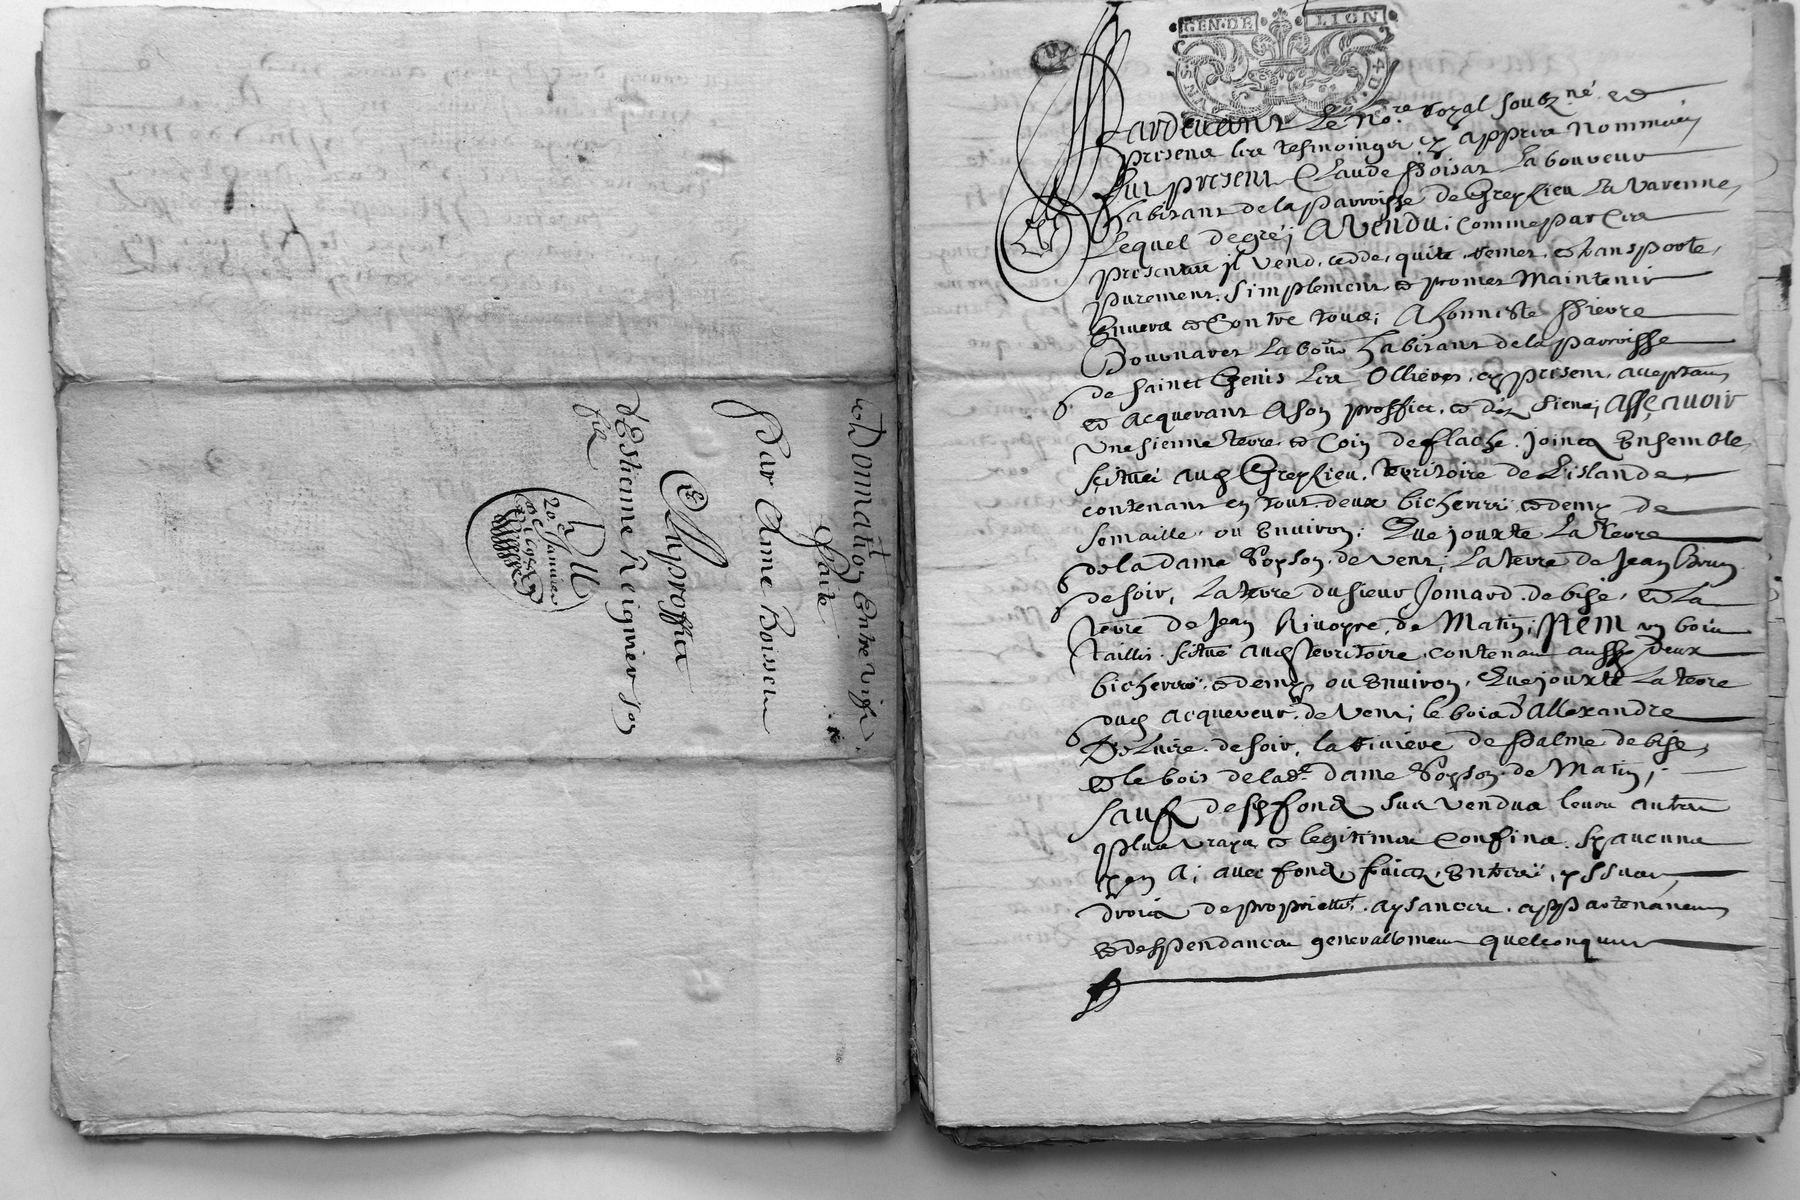 Donnation Entre vifz
Faite
Par Anne Boisseu
Au proffict
d'Estienne Reignier son
filz
Du
20e Janvier
GEN·DE LION
Pardevant Le No.re royal soubz.né et
present les tesmoings cy appres nommés
fut present Claude Poisat Laboureur
habitant de la parroisse de Grezlieu La Varenne,
Lequel de gré, A vendu, comme par ces
presentes il vend, cedde, quite, remet, et transporte,
purement, simplement et promet Maintenir
Envers et Contre tous; A honneste Pierre
Bournaret Labour habitant de la parroisse
de Sainct Genis Les Ollieres, cy present, acceptant
et acquerant A son proffict, et des siens, Assçavoir
Une sienne terre et Coin de flache, joinct Ensemble,
scitué aud Grezlieu, territoire de Lislande
contenant en tout deux bicherées et demy de
semaille, ou Environ; Que jouxte La terre
de la dame de vent, La terre de Jean Brun
de soir, La terre du sieur Jomard de bise, et La
terre de Jean Rivoyre, de Matin; Item un bois
taillis scitué aud territoire, contenant aussy deux
bicherées et demy ou Environ, Que jouxte La terre
dud acquereur, de Vent, le bois d'Allexandre
de soir, la riviere de de bise,
et le bois de lad.e dame de Matin;
Sauf desd fondz sus vendus leurs autres
plus vrays et legitimes Confins, sy aucuns
y en a; avec fondz, fruictz, Entrées, yssues,
droictz de proprietté, aysances, appartenances
et despendances generallement quelconques